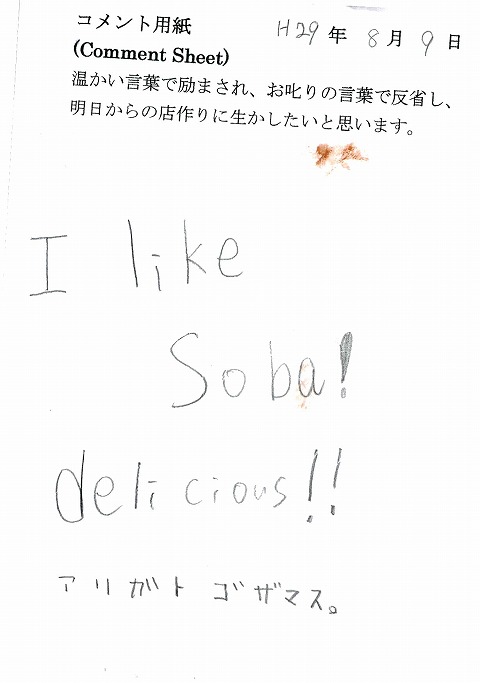 コメント用紙
H29年 8月 9日
(Comment Sheet)
温かい言葉で励まされ、お叱りの言葉で反省し、
明日からの店作りに生かしたいと思います。
I like
Soba!
delicious!!
アリガト ゴザマス。